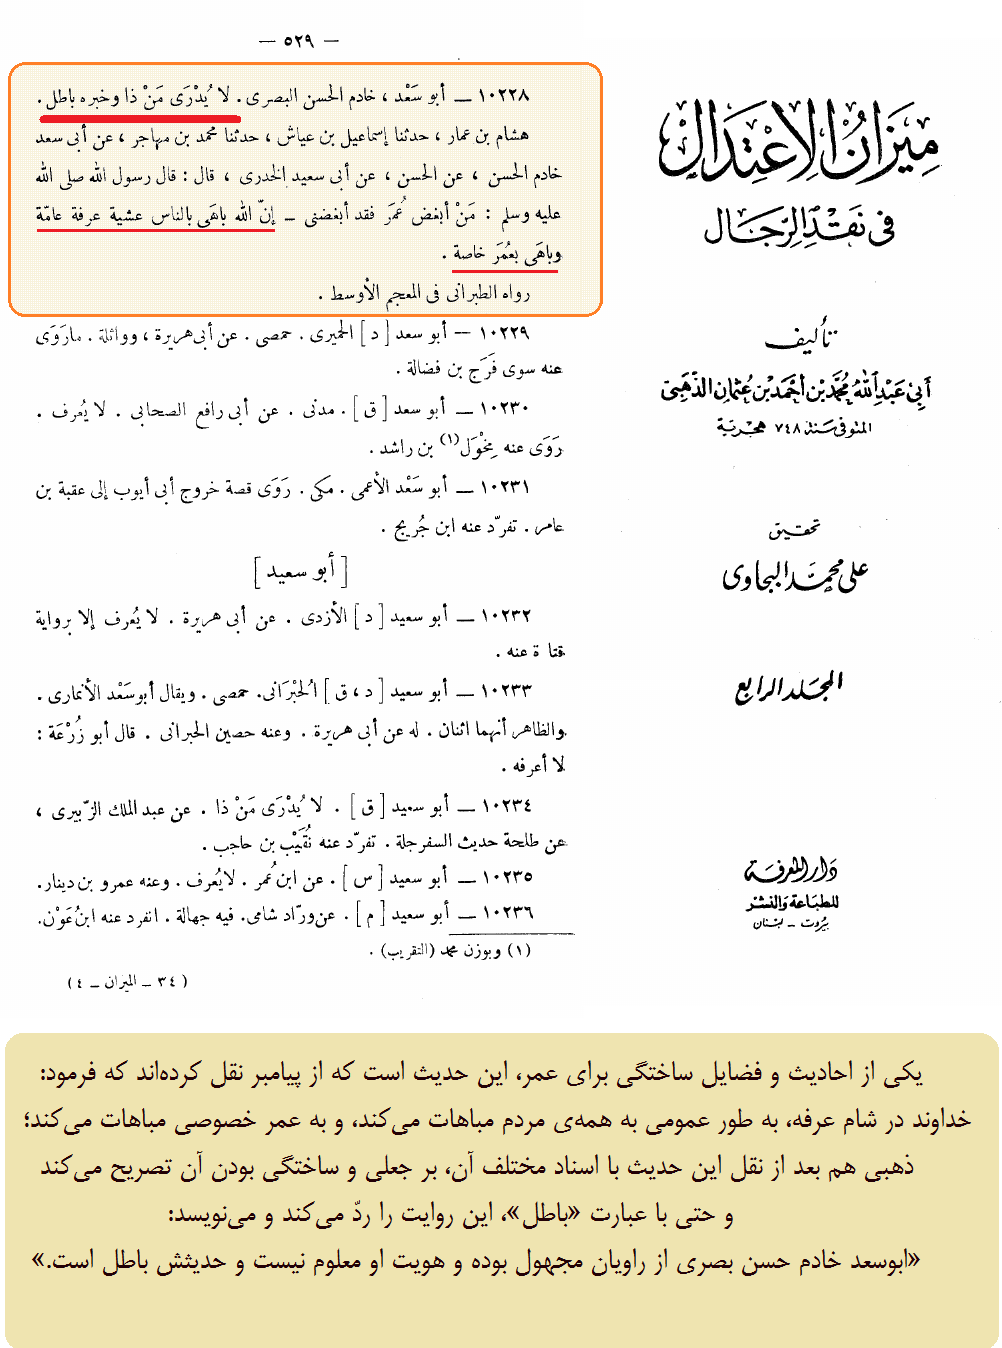 — ٥٢٩ —
١٠٢٢٨ — أبو سَعْد ، خادم الحسن البصرى . لا يُدْرَى مَنْ ذا وخبره باطل .
هشام بن عمار ، حدثنا إسماعيل بن عياش ، حدثنا محمد بن مهاجر ، عن أبى سعد
خادم الحسن ، عن الحسن ، عن أبى سعيد الخدرى ، قال : قال رسول الله صلى الله
عليه وسلم : مَنْ أبغض عُمَر فقد أبغضنى — إنّ الله باهَى بالناس عشية عرفة عامّة
وباهَى بعُمَرَ خاصة .
رواه الطبرانى فى المعجم الأوسط .
١٠٢٢٩ — أبو سعد [ د ] الحميرى . حمصى . عن أبى هريرة ، وواثلة . مارَوَى
عنه سوى فَرَج بن فضالة .
١٠٢٣٠ — أبو سعد [ ق ] . مدنى . عن أبى رافع الصحابى . لا يُعرف .
رَوَى عنه مِخْوَل(١) بن راشد .
١٠٢٣١ — أبو سَعْد الأعمى . مكى . رَوَى قصة خروج أبى أيوب إلى عقبة بن
عامر . تفرّد عنه ابن جُريج .
[ أبو سعيد ]
١٠٢٣٢ — أبو سعيد [ د ] الأزدى . عن أبى هريرة . لا يُعرف إلا برواية
قتا ة عنه .
١٠٢٣٣ — أبو سعيد [ د ، ق ] الحُبْرَانى. حمصى . ويقال أبوسَعْد الأنمارى .
والظاهر أنهما اثنان . له عن أبى هريرة . وعنه حصين الحبرانى . قال أبو زُرْعَة :
لا أعرفه .
١٠٢٣٤ — أبو سعيد [ ق ] . لا يُدْرَى مَنْ ذا . عن عبد الملك الزّبيرى ،
عن طلحة حديث السفرجلة . تفرّد عنه نُقَيْب بن حاجب .
١٠٢٣٥ — أبو سعيد [ س ] . عن ابن عُمر . لايُعرف . وعنه عمرو بن دينار.
١٠٢٣٦ — أبو سعيد [ م ] . عن ورّاد شامى. فيه جهالة . انفرد عنه ابنُ عَوْن.
(١) وبوزن محمد (التقريب) .
( ٣٤ — الميزان — ٤ )
ميزان الاعتدال
فى نقد الرجال
تأليف
أبى عبد الله محمد بن أحمد بن عثمان الذهبى
المتوفى سنة ٧٤٨ هجرية
تحقيق
على محمد البجاوى
المجلد الرابع
دار المعرفة
للطباعة والنشر
بيروت — لبنان
یکی از احادیث و فضایل ساختگی برای عمر، این حدیث است که از پیامبر نقل کرده‌اند که فرمود:
خداوند در شام عرفه، به طور عمومی به همه‌ی مردم مباهات می‌کند، و به عمر خصوصی مباهات می‌کند؛
ذهبی هم بعد از نقل این حدیث با اسناد مختلف آن، بر جعلی و ساختگی بودن آن تصریح می‌کند
و حتی با عبارت «باطل»، این روایت را ردّ می‌کند و می‌نویسد:
«ابوسعد خادم حسن بصری از راویان مجهول بوده و هویت او معلوم نیست و حدیثش باطل است.»